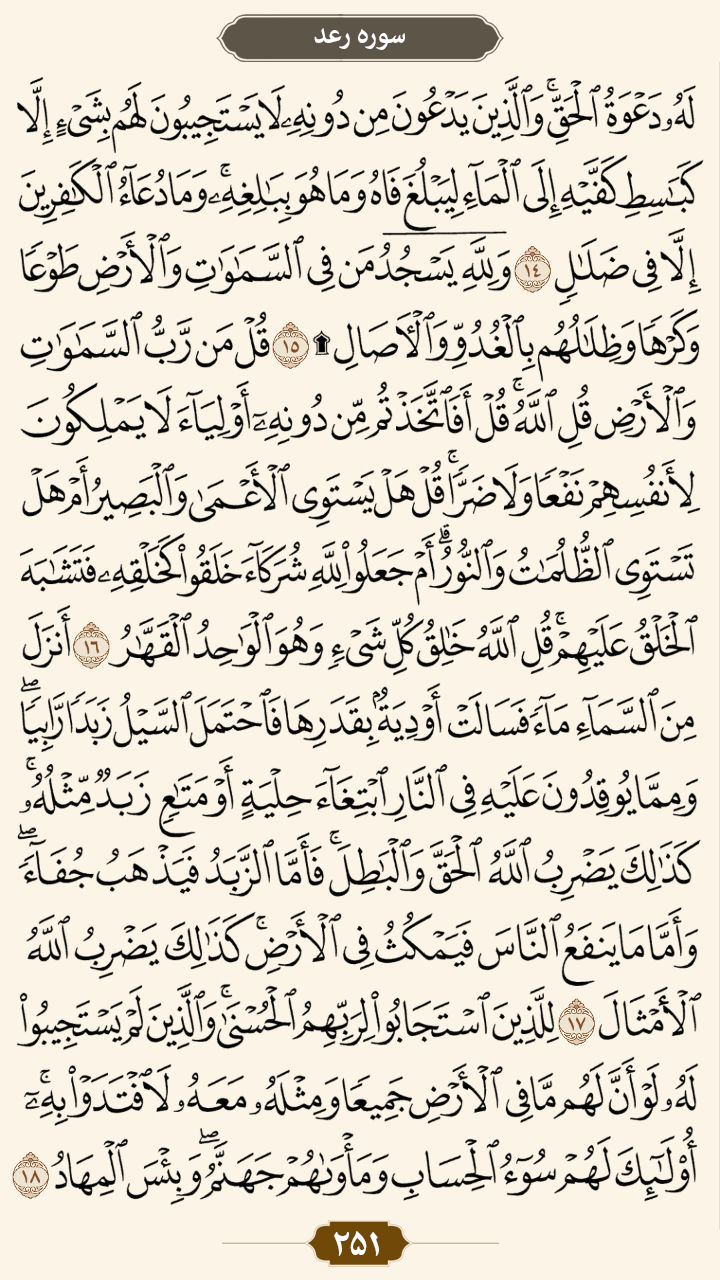 سوره رعد
لَهُۥ دَعۡوَةُ ٱلۡحَقِّۚ وَٱلَّذِينَ يَدۡعُونَ مِن دُونِهِۦ لَا يَسۡتَجِيبُونَ لَهُم بِشَيۡءٍ إِلَّا
كَبَٰسِطِ كَفَّيۡهِ إِلَى ٱلۡمَآءِ لِيَبۡلُغَ فَاهُ وَمَا هُوَ بِبَٰلِغِهِۦۚ وَمَا دُعَآءُ ٱلۡكَٰفِرِينَ
إِلَّا فِي ضَلَٰلٖ ١٤ وَلِلَّهِۤ يَسۡجُدُۤ مَن فِي ٱلسَّمَٰوَٰتِ وَٱلۡأَرۡضِ طَوۡعٗا
وَكَرۡهٗا وَظِلَٰلُهُم بِٱلۡغُدُوِّ وَٱلۡأٓصَالِ ۩ ١٥ قُلۡ مَن رَّبُّ ٱلسَّمَٰوَٰتِ
وَٱلۡأَرۡضِ قُلِ ٱللَّهُۚ قُلۡ أَفَٱتَّخَذۡتُم مِّن دُونِهِۦٓ أَوۡلِيَآءَ لَا يَمۡلِكُونَ
لِأَنفُسِهِمۡ نَفۡعٗا وَلَا ضَرّٗاۚ قُلۡ هَلۡ يَسۡتَوِي ٱلۡأَعۡمَىٰ وَٱلۡبَصِيرُ أَمۡ هَلۡ
تَسۡتَوِي ٱلظُّلُمَٰتُ وَٱلنُّورُۗ أَمۡ جَعَلُواْ لِلَّهِ شُرَكَآءَ خَلَقُواْ كَخَلۡقِهِۦ فَتَشَٰبَهَ
ٱلۡخَلۡقُ عَلَيۡهِمۡۚ قُلِ ٱللَّهُ خَٰلِقُ كُلِّ شَيۡءٖ وَهُوَ ٱلۡوَٰحِدُ ٱلۡقَهَّٰرُ ١٦ أَنزَلَ
مِنَ ٱلسَّمَآءِ مَآءٗ فَسَالَتۡ أَوۡدِيَةُۢ بِقَدَرِهَا فَٱحۡتَمَلَ ٱلسَّيۡلُ زَبَدٗا رَّابِيٗاۖ
وَمِمَّا يُوقِدُونَ عَلَيۡهِ فِي ٱلنَّارِ ٱبۡتِغَآءَ حِلۡيَةٍ أَوۡ مَتَٰعٖ زَبَدٞ مِّثۡلُهُۥۚ
كَذَٰلِكَ يَضۡرِبُ ٱللَّهُ ٱلۡحَقَّ وَٱلۡبَٰطِلَۚ فَأَمَّا ٱلزَّبَدُ فَيَذۡهَبُ جُفَآءٗۖ
وَأَمَّا مَا يَنفَعُ ٱلنَّاسَ فَيَمۡكُثُ فِي ٱلۡأَرۡضِۚ كَذَٰلِكَ يَضۡرِبُ ٱللَّهُ
ٱلۡأَمۡثَالَ ١٧ لِلَّذِينَ ٱسۡتَجَابُواْ لِرَبِّهِمُ ٱلۡحُسۡنَىٰۚ وَٱلَّذِينَ لَمۡ يَسۡتَجِيبُواْ
لَهُۥ لَوۡ أَنَّ لَهُم مَّا فِي ٱلۡأَرۡضِ جَمِيعٗا وَمِثۡلَهُۥ مَعَهُۥ لَٱفۡتَدَوۡاْ بِهِۦٓۚ
أُوْلَٰٓئِكَ لَهُمۡ سُوٓءُ ٱلۡحِسَابِ وَمَأۡوَىٰهُمۡ جَهَنَّمُۖ وَبِئۡسَ ٱلۡمِهَادُ ١٨
٢۵١